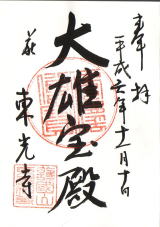 奉拝
平成六年十一月十日
大雄宝殿
萩
東光寺